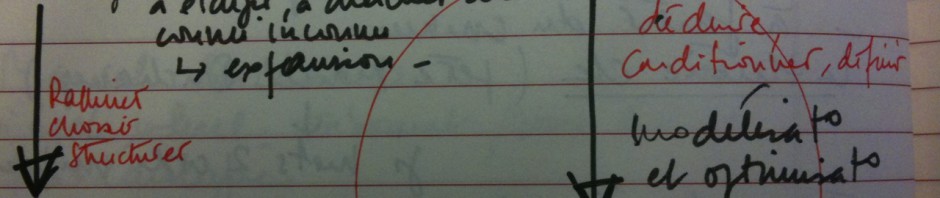 à élargir, à
connu inconnu
↳ expansion -
Raffiner
choisir
structurer
déduire,
conditionner, définir
modélisat°
et optimisat°